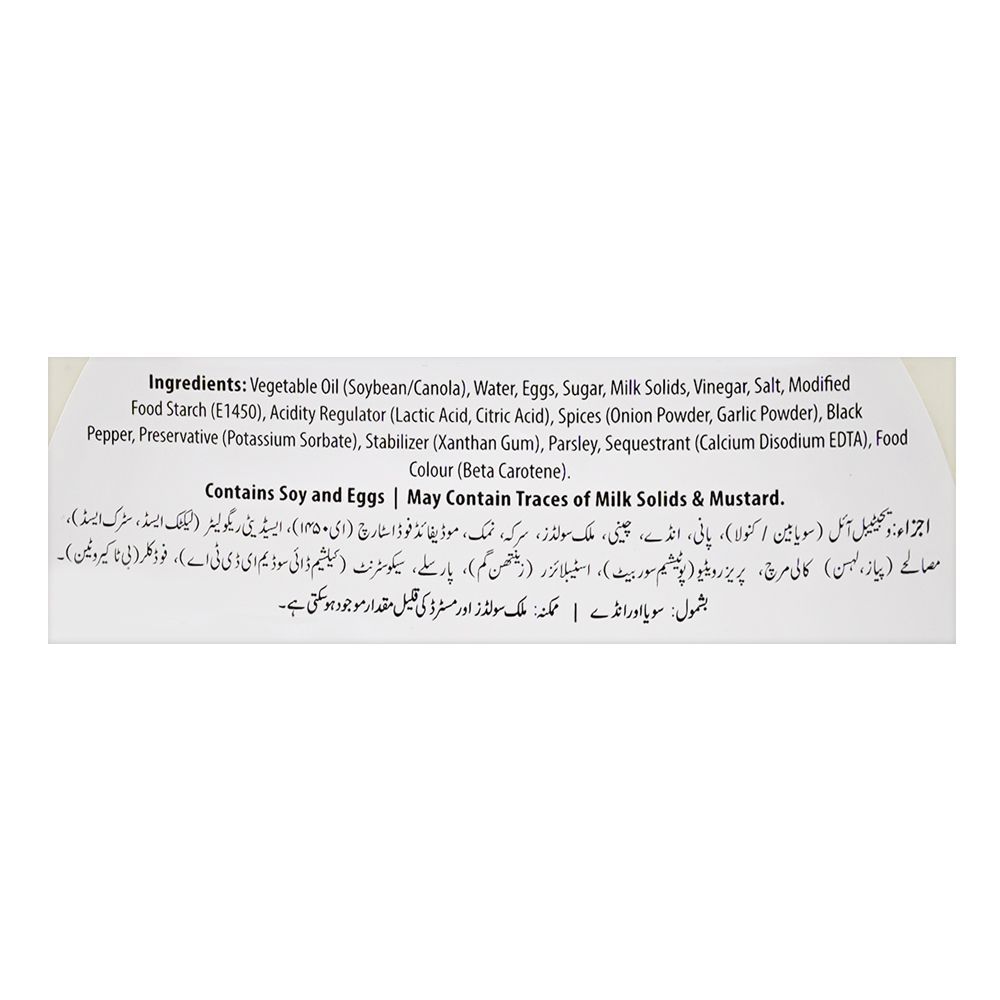 Ingredients: Vegetable Oil (Soybean/Canola), Water, Eggs, Sugar, Milk Solids, Vinegar, Salt, Modified
Food Starch (E1450), Acidity Regulator (Lactic Acid, Citric Acid), Spices (Onion Powder, Garlic Powder), Black
Pepper, Preservative (Potassium Sorbate), Stabilizer (Xanthan Gum), Parsley, Sequestrant (Calcium Disodium EDTA), Food
Colour (Beta Carotene).
Contains Soy and Eggs | May Contain Traces of Milk Solids & Mustard.
اجزاء: ویجیٹیبل آئل (سویابین / کنولا)، پانی، انڈے، چینی، ملک سولڈز، سرکہ، نمک، موڈیفائڈ فوڈ اسٹارچ (ای ۱۴۵۰)، ایسیڈیٹی ریگولیٹر (لیکٹک ایسڈ، سٹرک ایسڈ)،
مصالحے (پیاز، لہسن) کالی مرچ، پریزرویٹیو (پوٹیشیم سوربیٹ)، اسٹیبلائزر (زینتھن گم)، پارسلے، سیکوسٹرنٹ (کیلشیم ڈائی سوڈیم ای ڈی ٹی اے)، فوڈ کلر (بی ٹا کیروٹین)۔
بشمول: سویا اور انڈے | ممکنہ: ملک سولڈز اور مسٹرڈ کی قلیل مقدار موجود ہوسکتی ہے۔